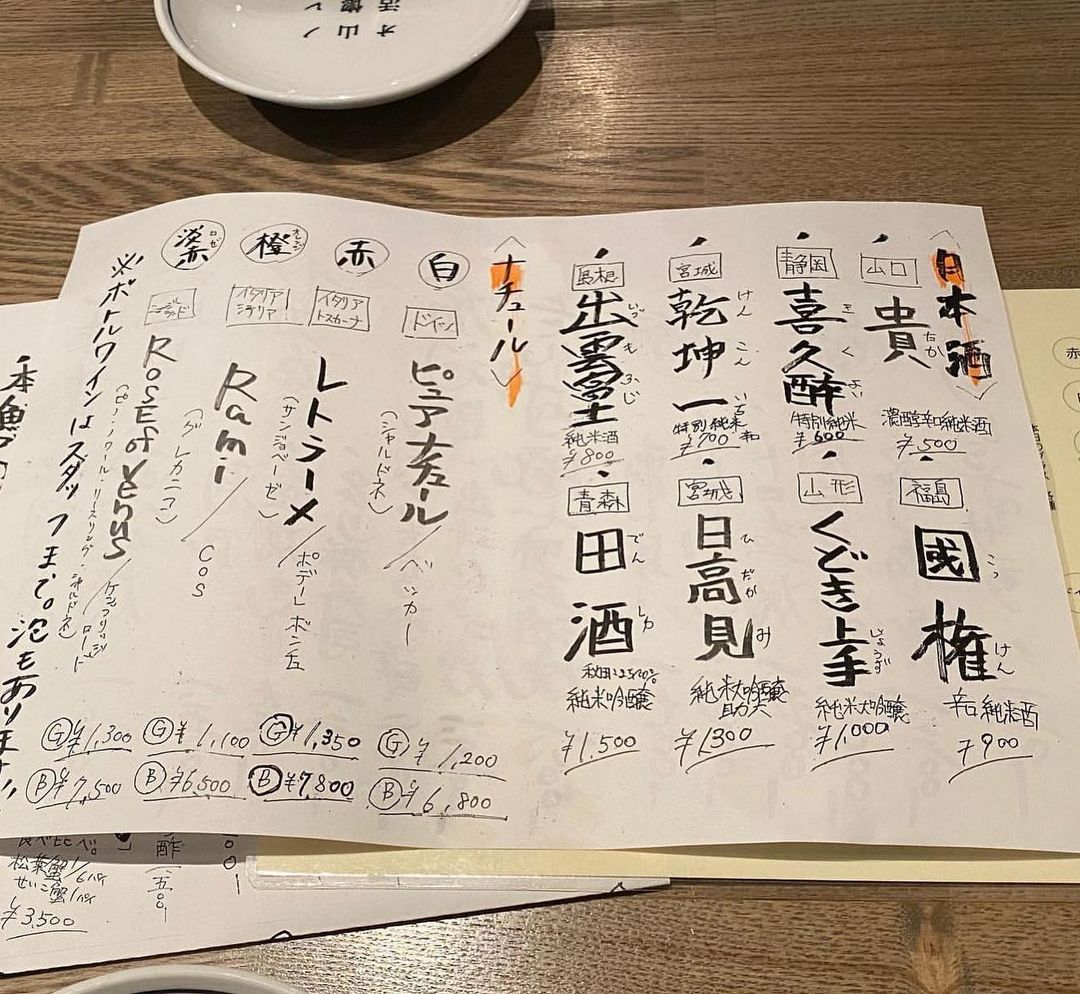 日本酒
山口
貴
たか
濃醇辛口純米酒
¥500
静岡
喜久酔
きくよい
特別純米
¥600
宮城
乾坤一
けんこんいち
特別純米
¥700
島根
出雲富士
いづもふじ
純米酒
¥800
福島
國権
こっけん
辛口純米酒
¥900
山形
くどき上手
じょうず
純米大吟醸
¥1,000
宮城
日高見
ひだかみ
純米大吟醸
助六
¥1,300
青森
田酒
でんしゅ
純米吟醸
¥1,500
ナチュール
白
ドイツ
ピュアナチュール/ベッカー
(シャルドネ)
Ⓖ¥1,200
Ⓑ¥6,800
赤
イタリア
トスカーナ
レトラーメ/ポデーレボンチ
(サンジョベーゼ)
Ⓖ¥1,350
Ⓑ¥7,800
橙
オレンジ
イタリア
シチリア
Rami/COS
(グレカニコ)
Ⓖ¥1,100
Ⓑ¥6,500
ロゼ
RosE of VEnus
Ⓖ¥1,300
Ⓑ¥7,500
※ボトルワインはスタッフまで。泡もあります
松葉蟹
せいこ蟹
¥3,500
酢